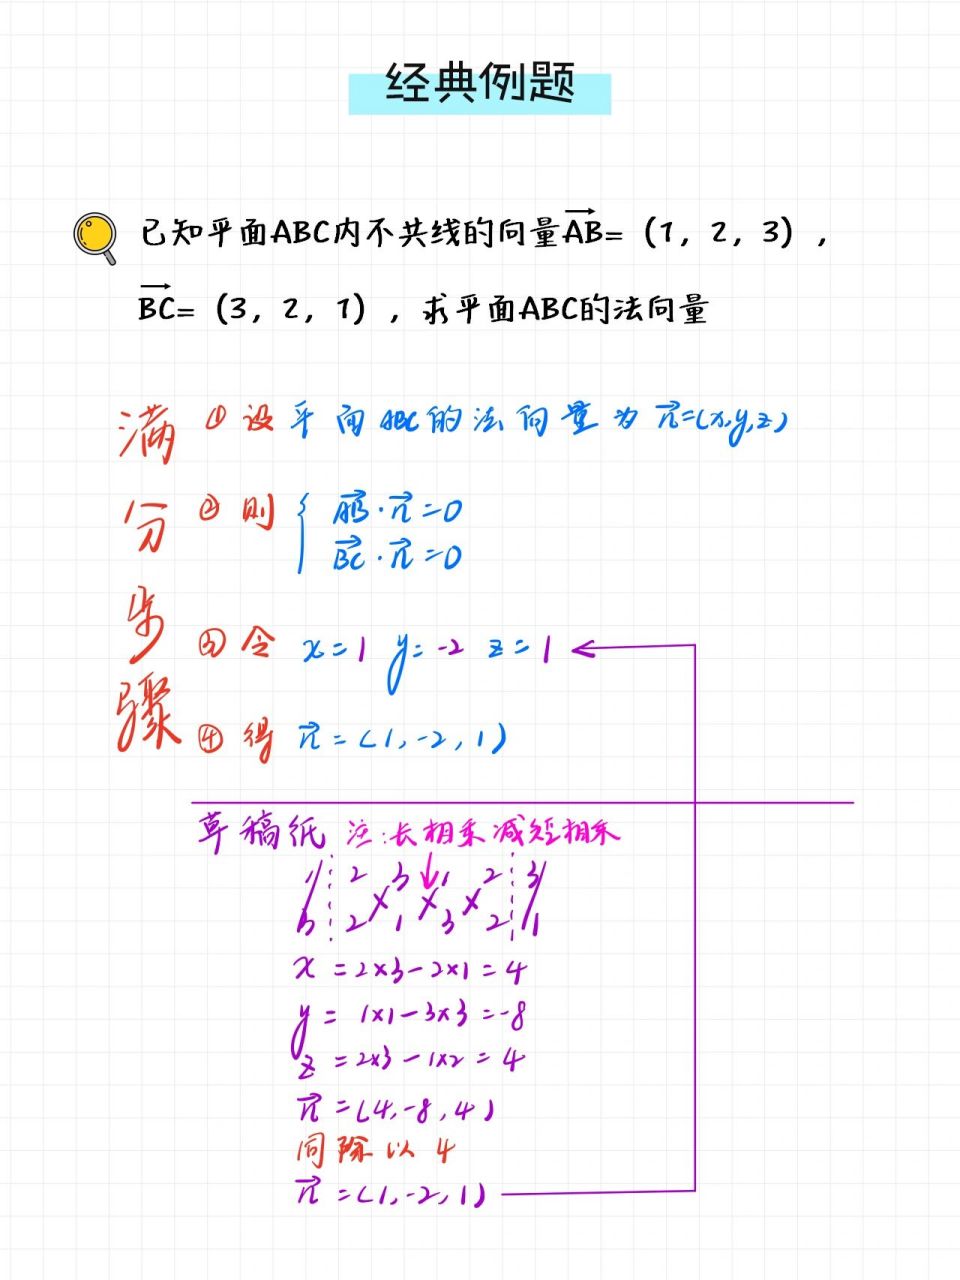 经典例题
已知平面ABC内不共线的向量AB=（1，2，3），
BC=（3，2，1），求平面ABC的法向量
满分步骤
① 设平面ABC的法向量为n=(x,y,z)
② 则 { AB·n=0
BC·n=0
③ 令 x=1 y=-2 z=1
④ 得 n=(1,-2,1)
草稿纸 注:长相乘减短相乘
1 2 3 1 2 3
3 2 1 3 2 1
x=2×3-2×1=4
y=1×1-3×3=-8
z=2×3-1×2=4
n=(4,-8,4)
同除以4
n=(1,-2,1)